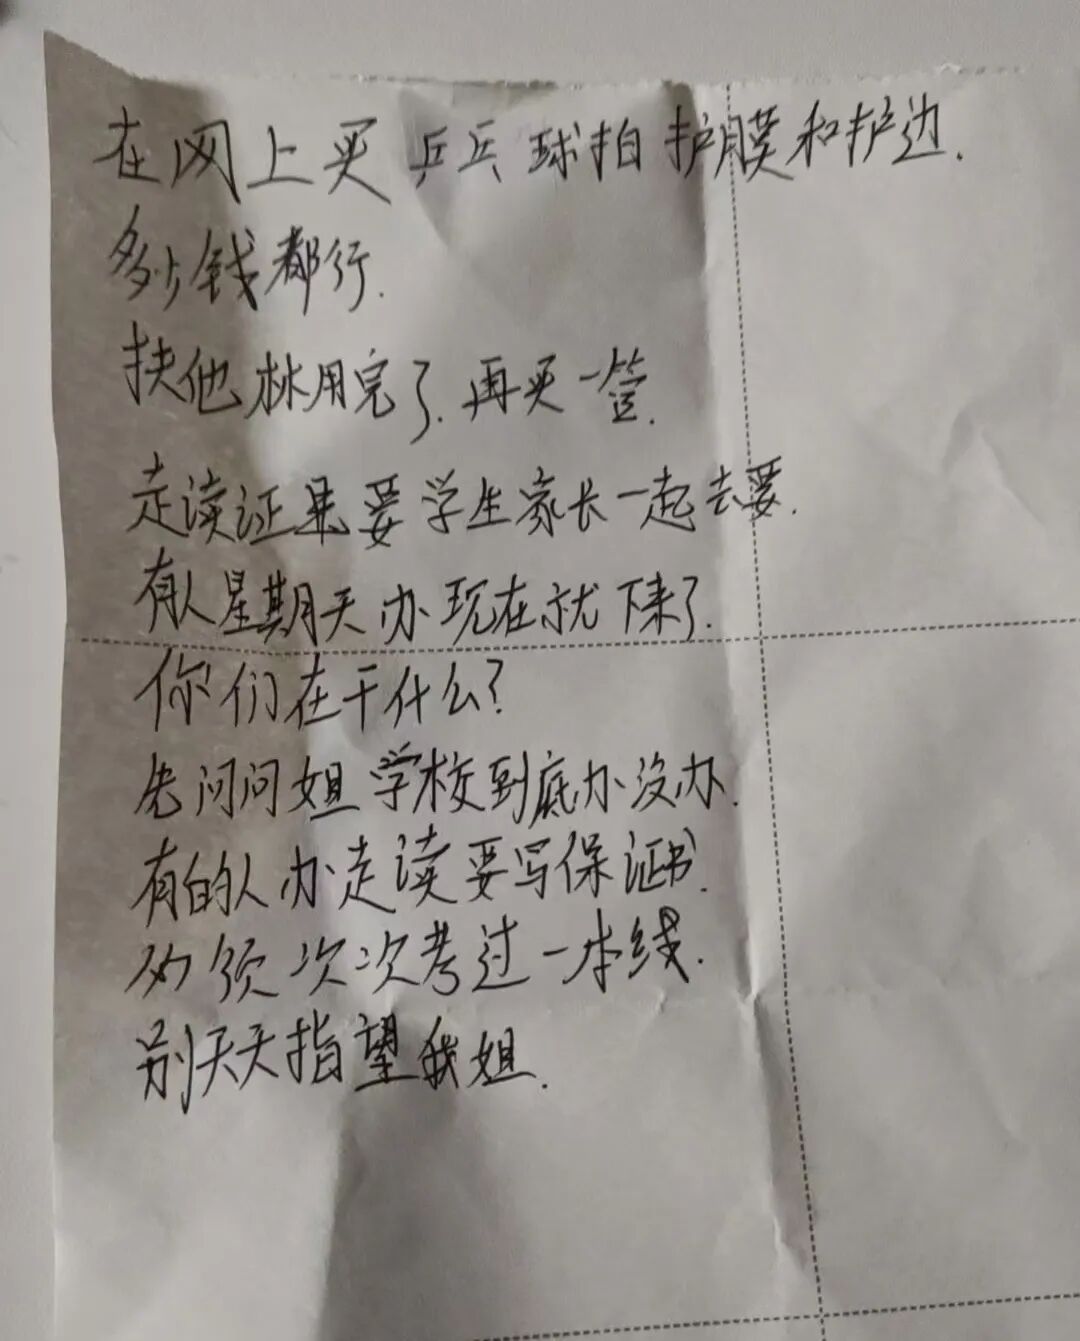 在网上买乒乓球拍护膜和护边.
多少钱都行.
扶他林用完了.再买一管.
走读证果要学生家长一起去要.
有人星期天办现在就下来了.
你们在干什么?
先问问姐学校到底办没办.
有的人办走读要写保证书.
必须次次考过一本线.
别天天指望我姐.